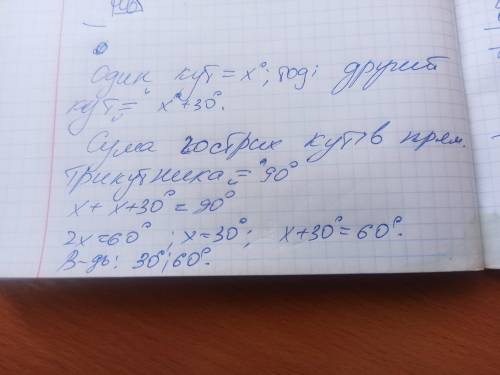 Один кут = x°; тоді другий
кут = x°+30°.
Сума гострих кутів прям.
трикутника = 90°
x + x+30° = 90°
2x=60°; x=30°; x+30°=60°.
В-дь: 30°; 60°.